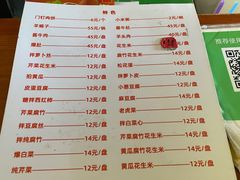 特色
门钉肉饼 6元/个
羊蝎子 45元/盘
酱牛肉 45元/盘
爆肚
拌萝卜丝 12元/盘
芹菜花生米 12元/盘
拍黄瓜 12元/盘
皮蛋豆腐 12元/盘
糖拌西红柿 12元/盘
拌萝卜皮 12元/盘
拌豆腐丝 12元/盘
拌纯腐竹 14元/盘
爆白菜 14元/盘
纯芹菜 12元/盘
小米粥
酱牛肚
羊头肉
花生米
腐竹花生米
松花蛋
拌萝卜皮
小葱豆腐
麻豆腐
老虎菜 12元/盘
拌白菜心 12元/盘
芹菜腐竹花生米 14元/盘
芹菜腐竹 14元/盘
黄瓜腐竹花生米 14元/盘
黄瓜花生米 12元/盘
推荐使用